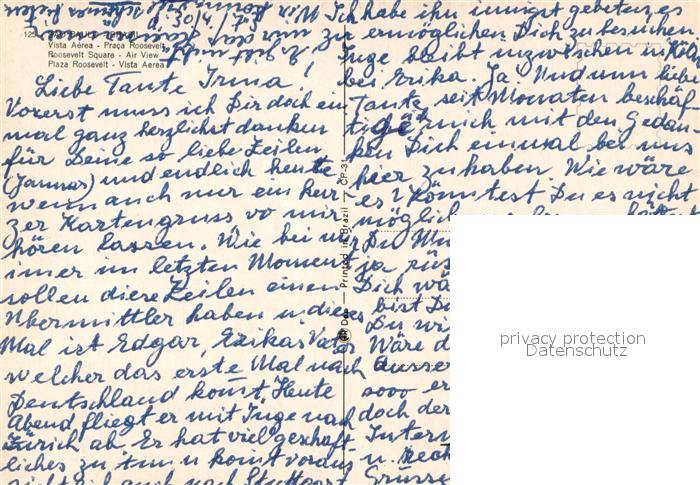 125 SÃO PAULO - BRASIL
Vista Aérea - Praça Roosevelt
Roosevelt Square - Air View
Plaza Roosevelt - Vista Aerea
Liebe Tante Irma!
Vorerst muss ich Dir doch ein
mal ganz herzlichst danken
für Deine so liebe Zeilen
(Januar) und endlich heute
wenn auch nur ein kur-
zer Kartengruss vo mir
hören lassen. Wie bei mir
imer im letzten Moment
sollen diese Zeilen einen
Übermittler haben u. dieses
Mal ist Edgar, Erikas Vater
welcher das erste Mal nach
Deutschland komt. Heute
Abend fliegt er mit Inge nach
Zürich ab. Er hat viel geschäft
liches zu tun u. komt voraus
sichtlich auch nach Stuttgart
Ich habe ihn innigst gebeten es
zu ermöglichen Dich zu besuchen.
Inge bleibt inzwischen in Köln
bei Erika. Ja! Und nun liebe
Tante, seit Monaten beschäf
tigt mich mit den Gedan
ken Dich einmal bei uns
hier zu haben. Wie wäre
es? Könntest Du es nicht
möglich
Du
ja
Dich wä
bist Du
Du wi
Wäre d
äusser
sooo er
doch der
Intern
u.
Grüsse
Printed in Brazil — CP-31
privacy protection
Datenschutz